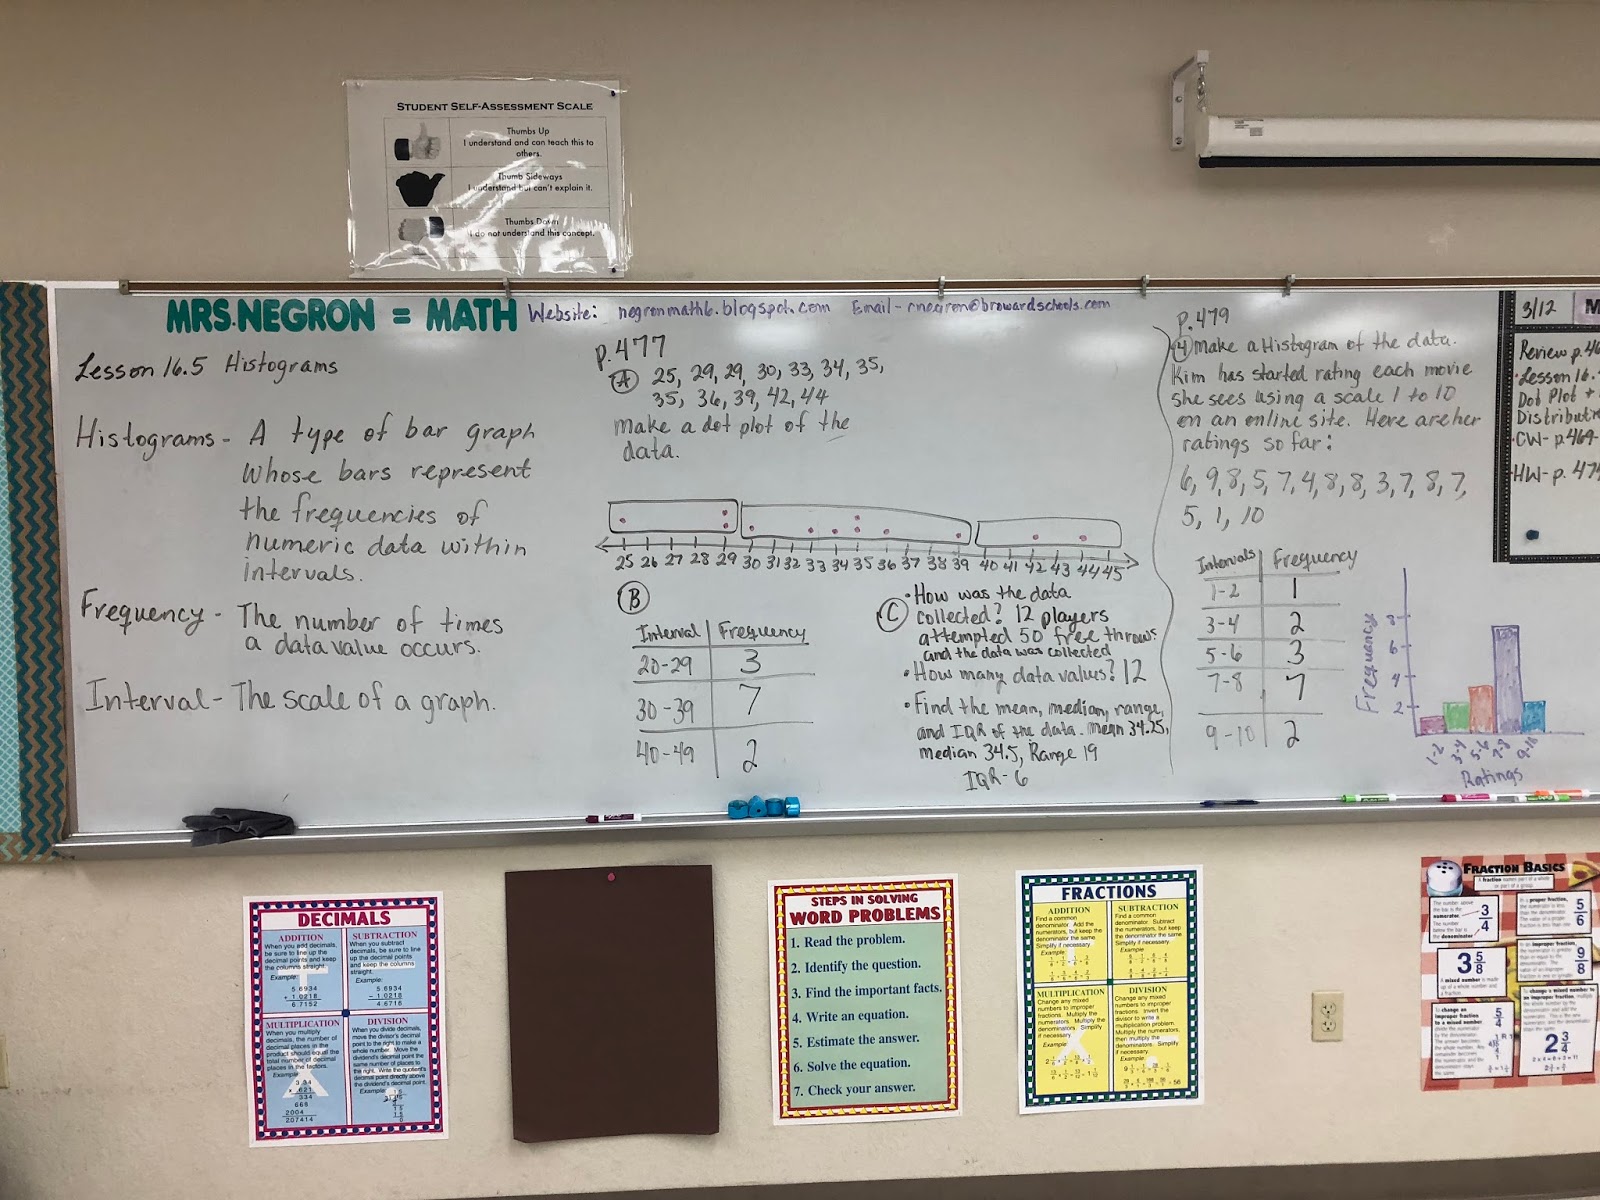 STUDENT SELF-ASSESSMENT SCALE
Thumbs Up
I understand and can teach this to
others.
Thumb Sideways
I understand but can't explain it.
Thumbs Down
I do not understand this concept.
MRS. NEGRON = MATH
Website: negronmath6.blogspot.com Email - rnegron@browardschools.com
Lesson 16.5 Histograms
Histograms - A type of bar graph
whose bars represent
the frequencies of
numeric data within
intervals.
Frequency - The number of times
a data value occurs.
Interval - The scale of a graph.
p. 477
A 25, 29, 29, 30, 33, 34, 35,
35, 36, 39, 42, 44
make a dot plot of the
data.
25 26 27 28 29 30 31 32 33 34 35 36 37 38 39 40 41 42 43 44 45
B
Interval Frequency
20-29 3
30-39 7
40-49 2
C
• How was the data
collected? 12 players
attempted 50 free throws
and the data was collected
• How many data values? 12
• Find the mean, median, range,
and IQR of the data. mean 34.25,
median 34.5, Range 19
IQR - 6
p. 479
4 Make a Histogram of the data.
Kim has started rating each movie
she sees using a scale 1 to 10
on an online site. Here are her
ratings so far:
6, 9, 8, 5, 7, 4, 8, 8, 3, 7, 8, 7,
5, 1, 10
Intervals Frequency
1-2 1
3-4 2
5-6 3
7-8 7
9-10 2
Frequency
8
6
4
2
1-2 3-4 5-6 7-8 9-10
Ratings
3/12 M
Review p. 46
Lesson 16.
Dot Plot +
CW- p. 469-
HW- p. 47
DECIMALS
ADDITION
When you add decimals,
be sure to line up the
decimal points and keep
the columns straight.
Example:
5.6934
+ 1.0218
6.7152
SUBTRACTION
When you subtract
decimals, be sure to line
up the decimal points
and keep the columns
straight.
Example:
5.6934
- 1.0218
4.6716
MULTIPLICATION
When you multiply
decimals, the number of
decimal places in the
product should equal the
total number of decimal
places in the factors.
Example:
3.34
x .621
334
668
2004
2.07414
DIVISION
When you divide decimals,
move the divisor's decimal
point to the right to make a
whole number. Move the
dividend's decimal point the
same number of places to
the right. Write the quotient's
decimal point directly above
the dividend's decimal point.
Example:
STEPS IN SOLVING
WORD PROBLEMS
1. Read the problem.
2. Identify the question.
3. Find the important facts.
4. Write an equation.
5. Estimate the answer.
6. Solve the equation.
7. Check your answer.
FRACTIONS
ADDITION
Find a common
denominator. Add the
numerators, but keep the
denominator the same.
Simplify if necessary.
Example:
SUBTRACTION
Find a common
denominator. Subtract
the numerators, but keep
the denominator the same.
Simplify if necessary.
Example:
MULTIPLICATION
Change any mixed
numbers to improper
fractions. Multiply the
numerators. Multiply the
denominators. Simplify
if necessary.
Example:
DIVISION
Change any mixed
numbers to improper
fractions. Invert the
divisor to write a
multiplication problem.
Multiply the numerators,
then multiply the
denominators. Simplify
if necessary.
Example:
FRACTION BASICS
A fraction names part of a whole
or part of a group.
The number above
the bar is the
numerator.
The number
below the bar is
the denominator.
3/4
5/6
3 5/8
9/8
5/4
2 3/4